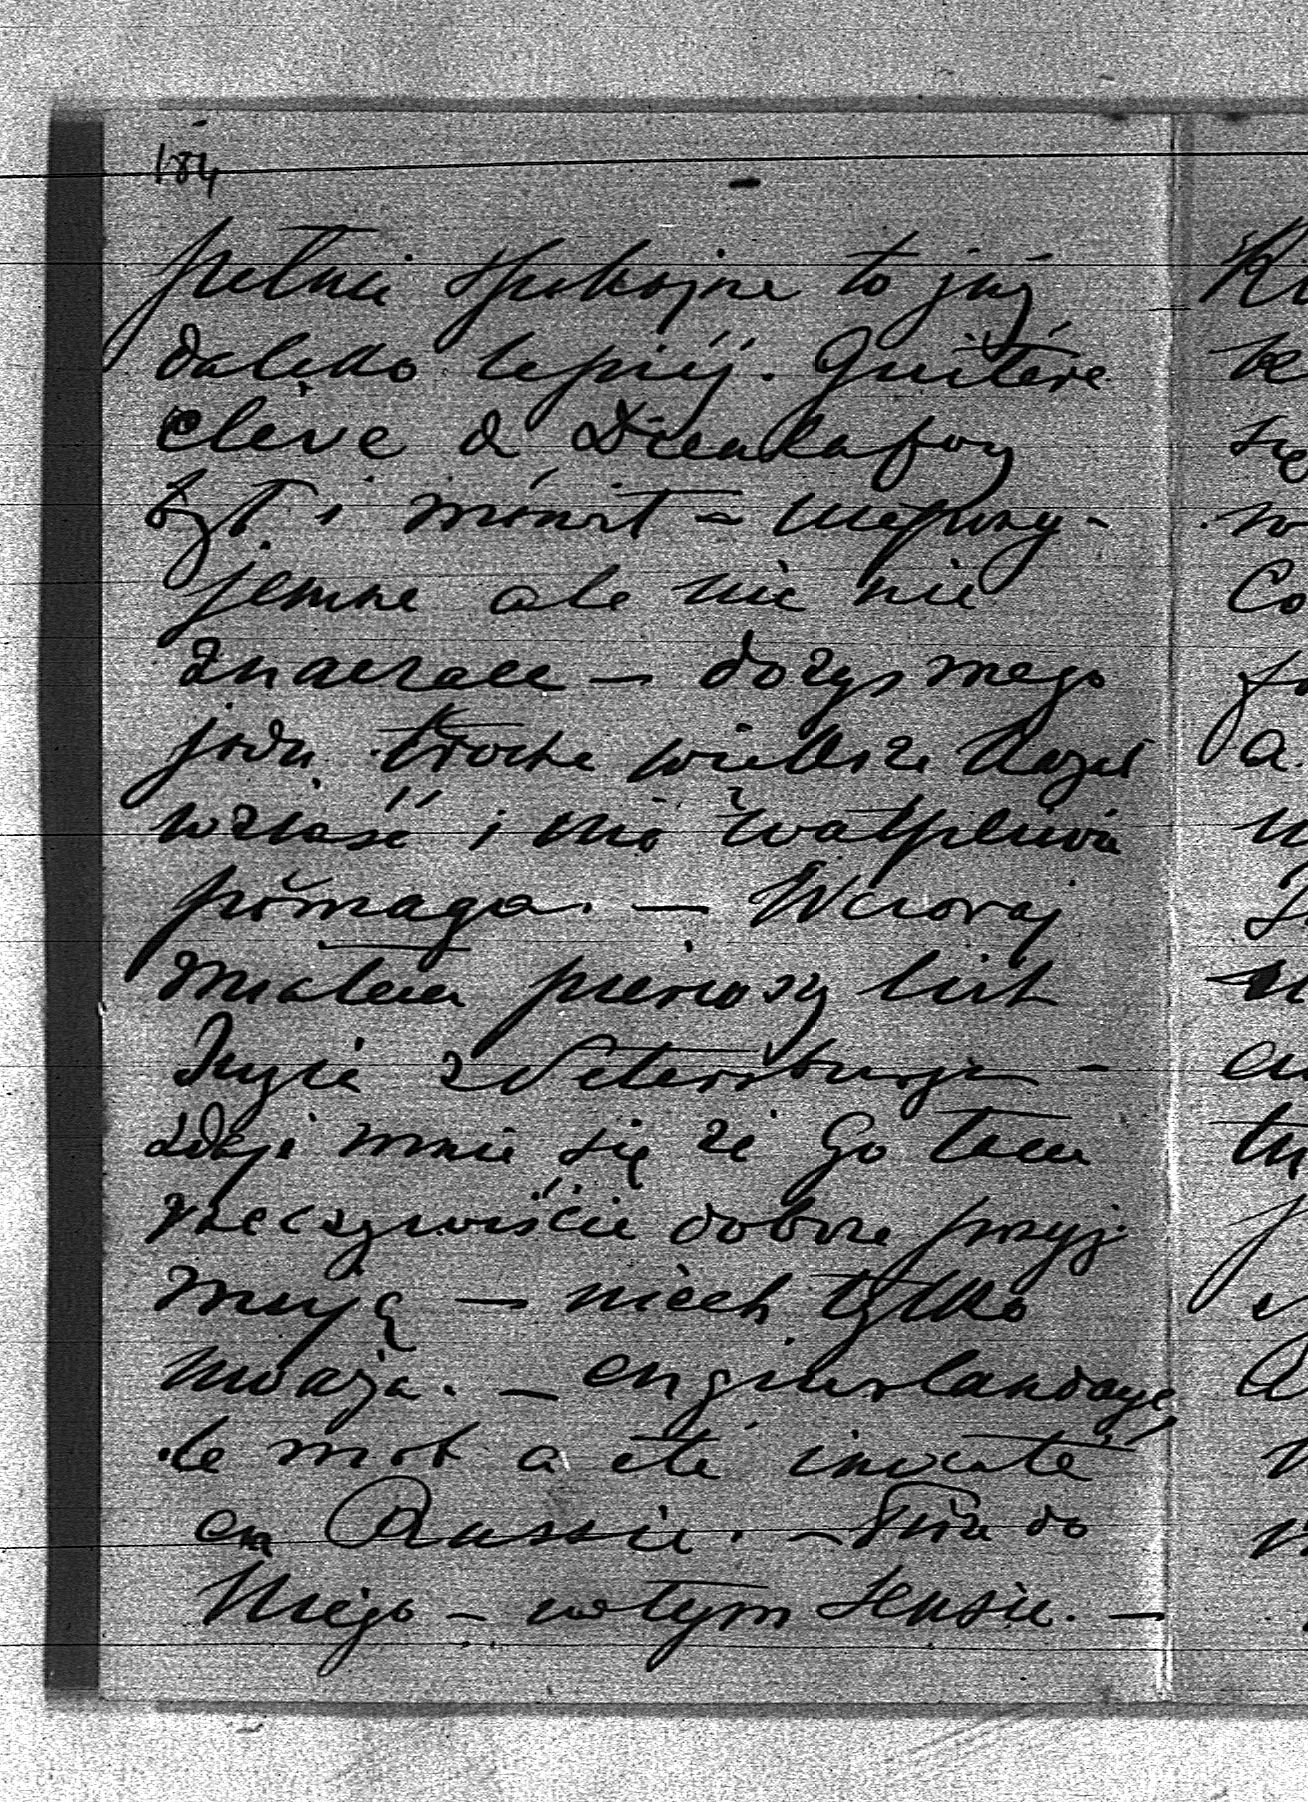 184
pełnie spokojne to już
daleko lepiéj. Guitére
eléve d Dieulafoy
był i mówił – nieprzy-
jemne ale nic nie
znaczace – dozys mego
jodu troche wieksze kazał
wziąść i nie wątpliwie
pomaga. – Wczoraj
miałam pierwszy list
Józia z Petersburga –
zdaje mnie się że Go tam
rzeczywiście dobrze przyj-
mują – niech tylko
uważa. – enguirlandage
le mot a été inventé
en Russie. – Pisze do
Niego – w tym sensie. –